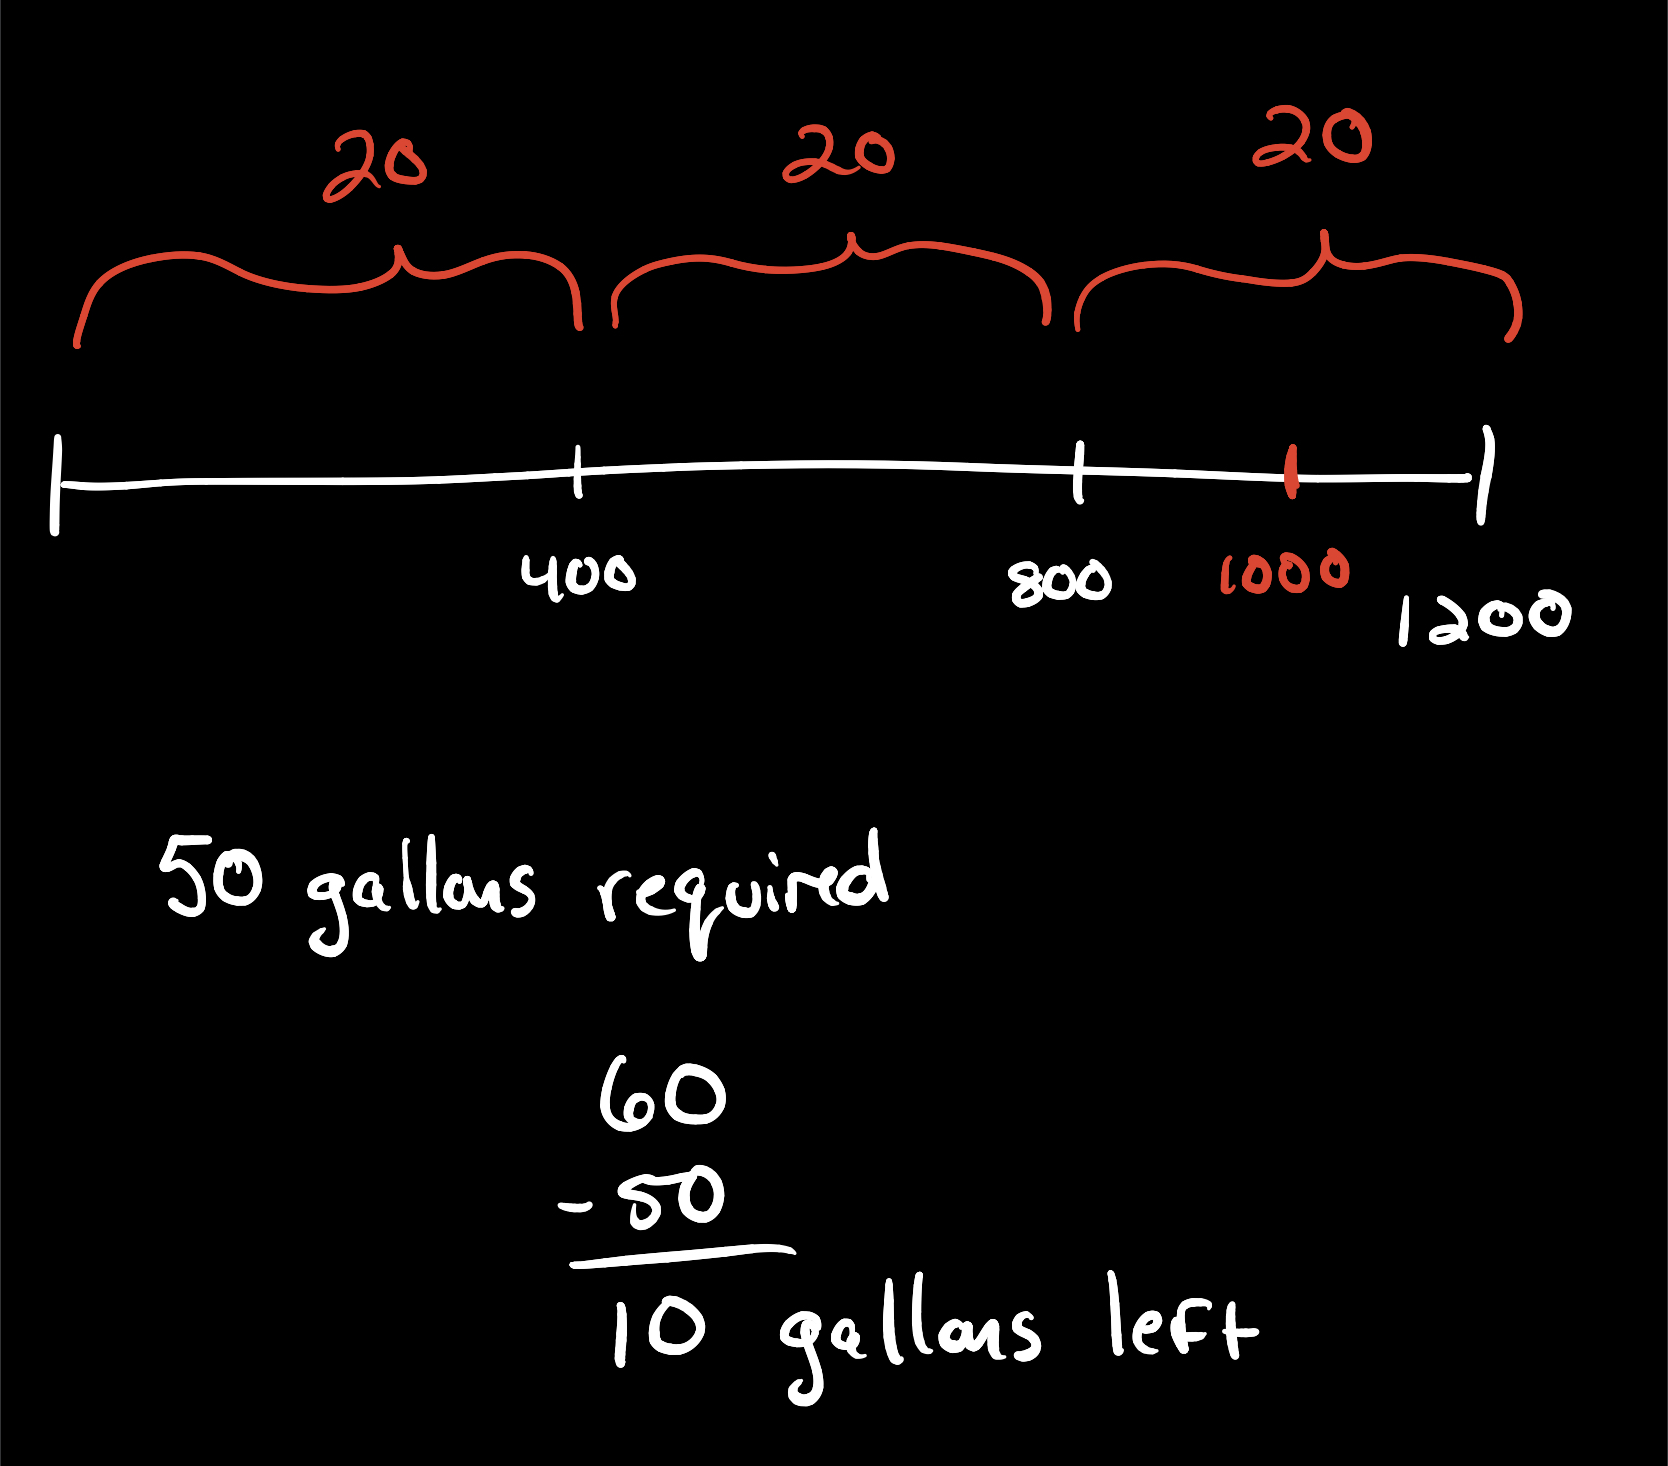 20 20 20
400 800 1000 1200
50 gallons required
60
- 50
10 gallons left